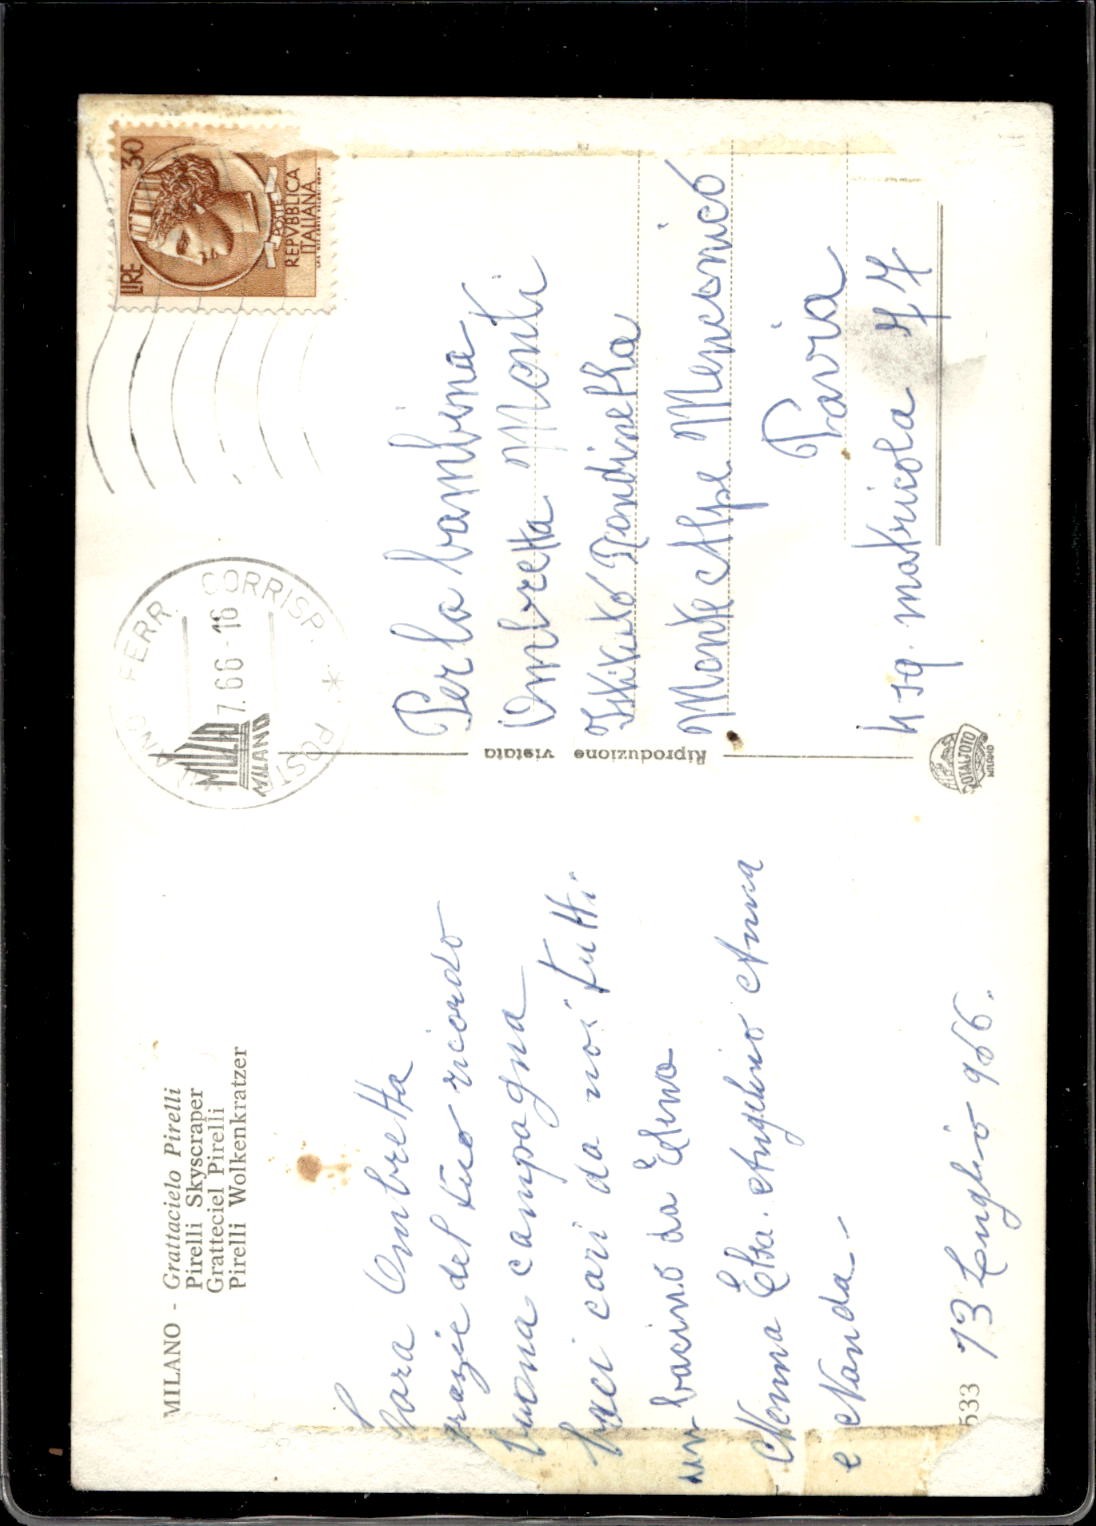 MILANO - Grattacielo Pirelli
Pirelli Skyscraper
Gratteciel Pirelli
Pirelli Wolkenkratzer
Cara Ombretta
grazie del tuo ricordo
buona campagna
baci cari da noi tutti
un bacino da Edino
Nonna Elsa. Angelino Anna
e Nanda
13 Luglio 966.
533
Riproduzione vietata
LIRE 30
POSTE
REPVBBLICA
ITALIANA
FERR. CORRISP.
POST
7.66-16
MILANO
Per la bambina
Ombretta Monti
Istituto Rondinella
Monte Alpe Menconico
Pavia
4 sq. matricola 77
ROTALFOTO
MILANO